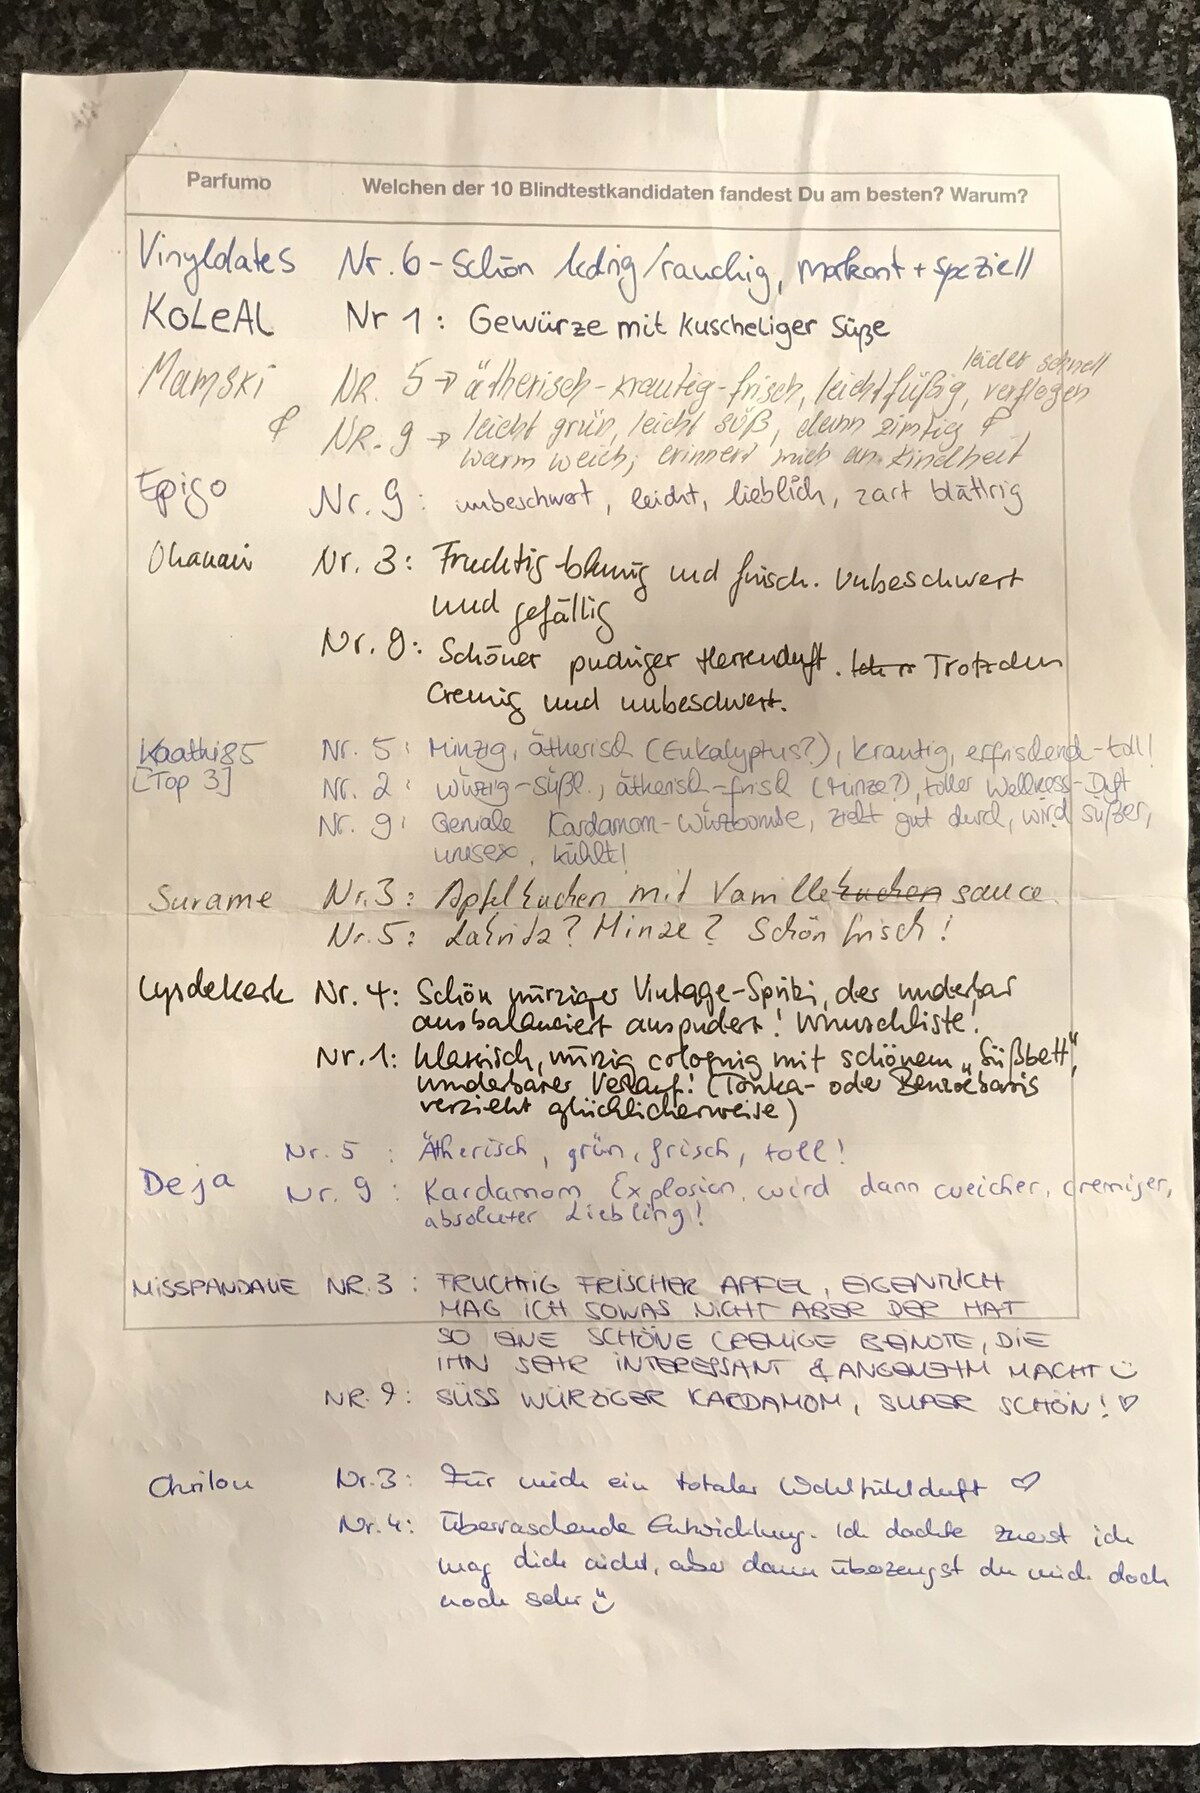 Parfumo Welchen der 10 Blindtestkandidaten fandest Du am besten? Warum?
Vinyldates Nr. 6 - Schön ledrig/rauchig, markant + speziell
KoLeAL Nr 1: Gewürze mit kuscheliger Süße
leider schnell
Mamski NR. 5 → ätherisch-krautig-frisch, leichtfüßig, verflogen
& NR. 9 → leicht grün, leicht süß, dann zimtig &
warm weich; erinnert mich an Kindheit
Epigo Nr. 9: unbeschwert, leicht, lieblich, zart blättrig
Ohanain Nr. 3: Fruchtig-blumig und frisch. Unbeschwert
und gefällig
Nr. 8: Schöner pudriger Herrenduft. Trotzdem
Cremig und unbeschwert.
Kaathi85 Nr. 5: Minzig, ätherisch (Eukalyptus?), krautig, erfrischend-toll!
[Top 3] Nr. 2: würzig-süßl., ätherisch-frisch (Minze?), toller Wellness-Duft
Nr. 9: Geniale Kardamom-Würzbombe, zieht gut durch, wird süßer,
unisex, kühlt!
Surame Nr.3: Apfelkuchen mit Vanillekuchen sauce
Nr.5: Lakritz? Minze? Schön frisch!
Lysdekerk Nr. 4: Schön würziger Vintage-Spritz, der wunderbar
ausbalanciert auspudert! Wunschliste!
Nr. 1: Klassisch, würzig colognig mit schönem „Süßbett“,
wunderbarer Verlauf! (Tonka- oder Benzoebasis
verzieht glücklicherweise)
Nr. 5 : Ätherisch, grün, frisch, toll!
Deja Nr. 9 : Kardamom Explosion, wird dann weicher, cremiger,
absoluter Liebling!
MISSPANDAUE NR. 3 : FRUCHTIG FRISCHER APFEL, EIGENTLICH
MAG ICH SOWAS NICHT ABER DER HAT
SO EINE SCHÖNE CREMIGE BEINOTE, DIE
IHN SEHR INTERESSANT & ANGENEHM MACHT
NR. 9: SÜSS WÜRZIGER KARDAMOM, SUPER SCHÖN! ♡
Chrilou Nr.3: Für mich ein totaler Wohlfühlduft ♡
Nr. 4: Überraschende Entwicklung. Ich dachte zuerst ich
mag dich nicht, aber dann überzeugst du mich doch
noch sehr